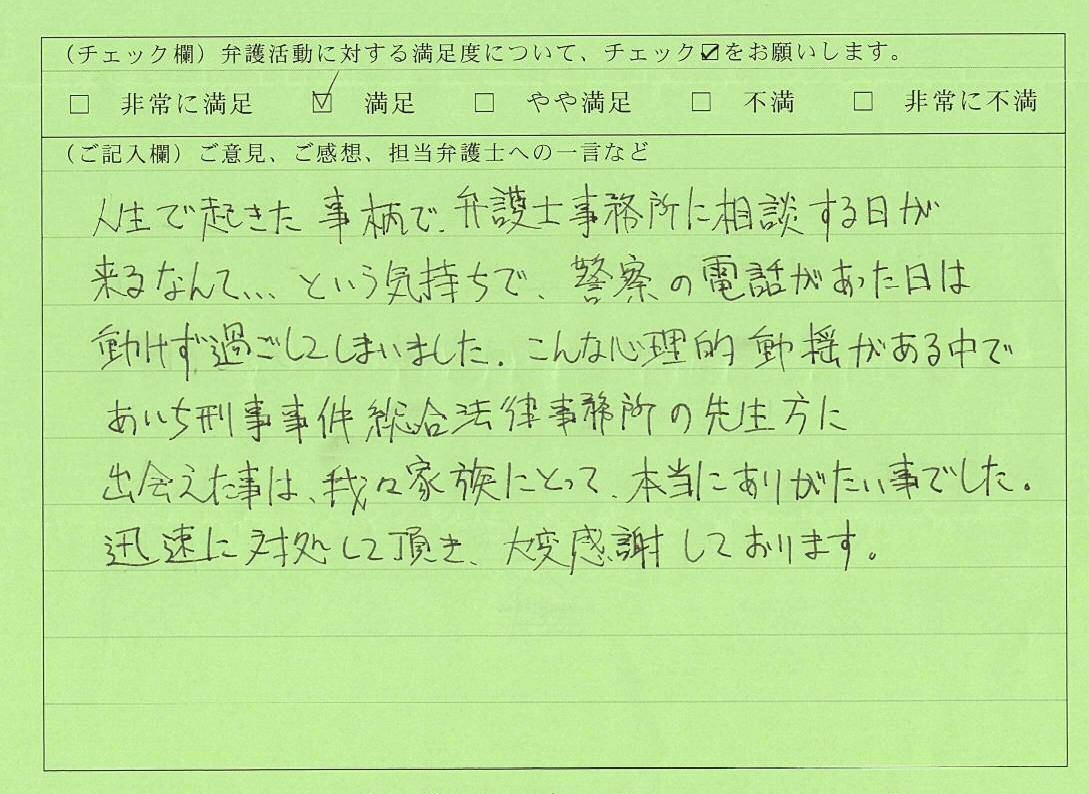 (チェック欄) 弁護活動に対する満足度について、チェック☑をお願いします。
□ 非常に満足 ☑ 満足 □ やや満足 □ 不満 □ 非常に不満
(ご記入欄) ご意見、ご感想、担当弁護士への一言など
人生で起きた事柄で、弁護士事務所に相談する日が
来るなんて、、、という気持ちで、警察の電話があった日は
動けず過ごしてしまいました。こんな心理的動揺がある中で
あいち刑事事件総合法律事務所の先生方に
出会えた事は、我々家族にとって、本当にありがたい事でした。
迅速に対処して頂き、大変感謝しております。